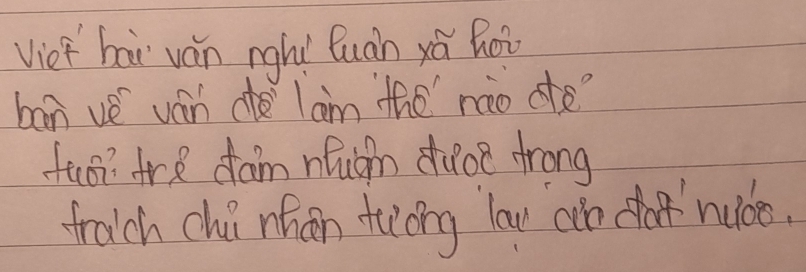 Viết bài văn nghị luận xã hội
bàn về vấn đề làm thế nào để
tuổi trẻ đảm nhuận được trong
trách chủ nhân tương lay của đất nước.